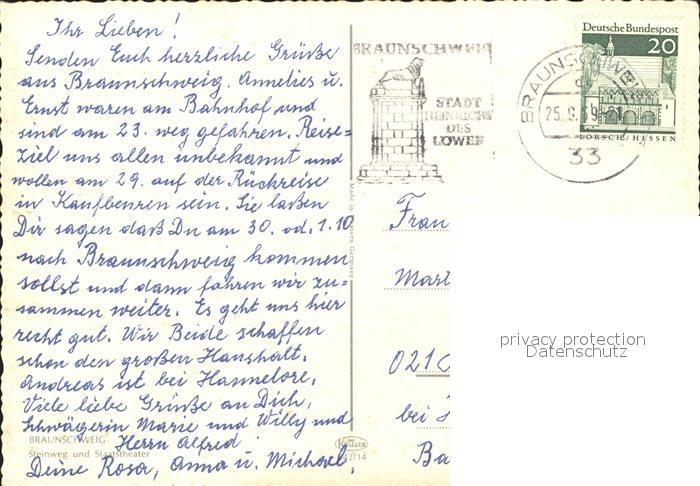 Ihr Lieben!
Senden Euch herzliche Grüße
aus Braunschweig. Annelies u.
Ernst waren am Bahnhof und
sind am 23. weg gefahren. Reise=
ziel uns allen unbekannt und
wollen am 29. auf der Rückreise
in Kaufbeuren sein. Sie laßen
Dir sagen daß Du am 30. od. 1.10
nach Braunschweig kommen
sollst und dann fahren wir zu=
sammen weiter. Es geht uns hier
recht gut. Wir Beide schaffen
schon den großen Haushalt.
Andreas ist bei Hannelore.
Viele liebe Grüße an Dich,
Schwägerin Marie und Willy und
Herrn Alfred
Deine Rosa, Anna u. Michael.
BRAUNSCHWEIG
Steinweg und Staatstheater
BRAUNSCHWEIG
STADT
HEINRICHS
DES
LÖWEN
BRAUNSCHWEIG
25.9.69-21
33
Deutsche Bundespost
20
LORSCH/HESSEN
Frau
Mart
021
bei
Ba
privacy protection
Datenschutz